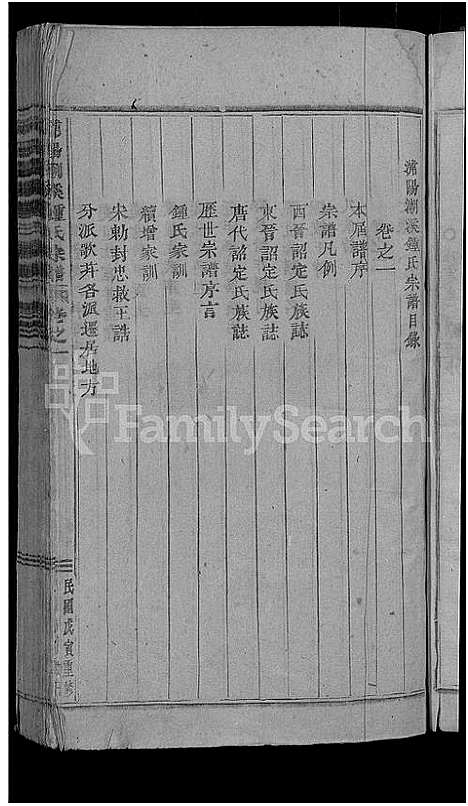 浦陽湖溪鍾氏宗譜目錄
卷之一
本届譜序
宗譜凡例
西晉詔定氏族誌
東晉詔定氏族誌
唐代詔定氏族誌
歷世宗譜序言
鍾氏家訓
續增家訓
宋勅封忠救王誥
分派歌并各派遷居地方
浦陽湖溪鍾氏宗譜 卷之一
民國戊寅重修
FamilySearch